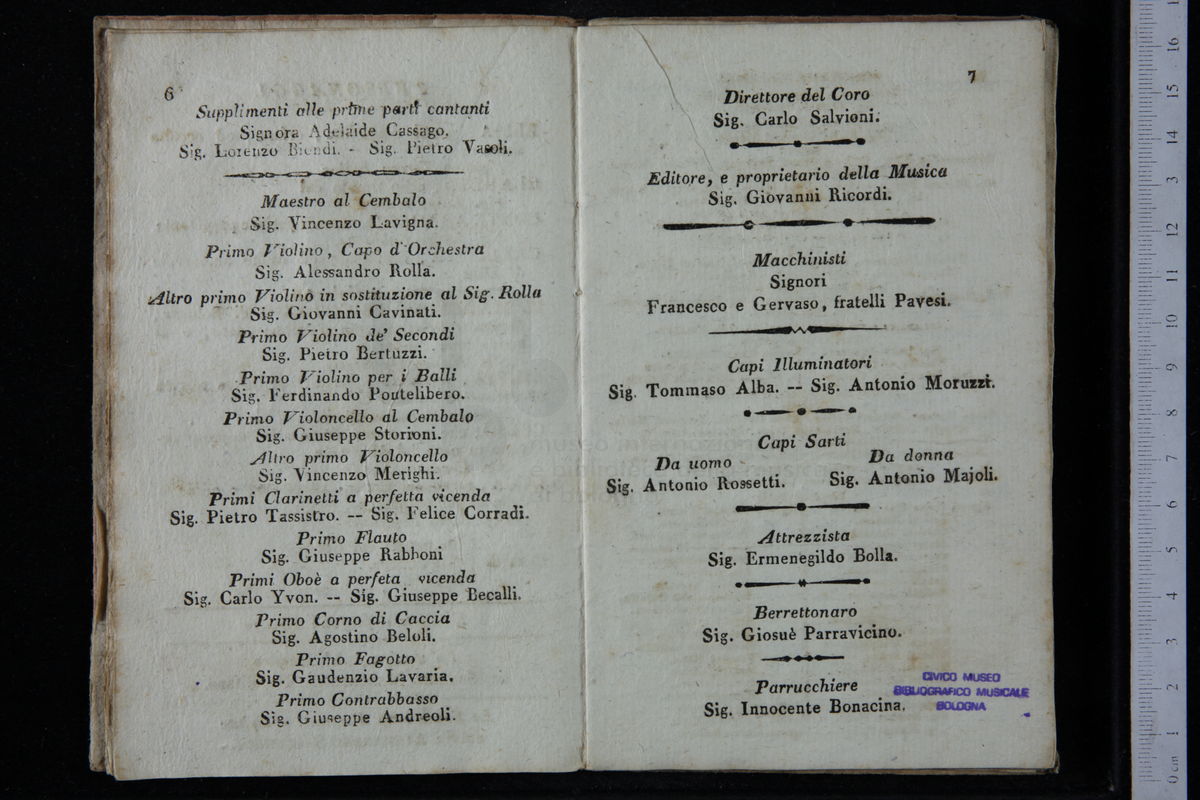 6
Supplimenti alle prime parti cantanti
Signora Adelaide Cassago.
Sig. Lorenzo Biondi. - Sig. Pietro Vasoli.
Maestro al Cembalo
Sig. Vincenzo Lavigna.
Primo Violino, Capo d'Orchestra
Sig. Alessandro Rolla.
Altro primo Violino in sostituzione al Sig. Rolla
Sig. Giovanni Cavinati.
Primo Violino de' Secondi
Sig. Pietro Bertuzzi.
Primo Violino per i Balli
Sig. Ferdinando Pontelibero.
Primo Violoncello al Cembalo
Sig. Giuseppe Storioni.
Altro primo Violoncello
Sig. Vincenzo Merighi.
Primi Clarinetti a perfetta vicenda
Sig. Pietro Tassistro. -- Sig. Felice Corradi.
Primo Flauto
Sig. Giuseppe Rabboni
Primi Oboè a perfeta vicenda
Sig. Carlo Yvon. -- Sig. Giuseppe Becalli.
Primo Corno di Caccia
Sig. Agostino Beloli.
Primo Fagotto
Sig. Gaudenzio Lavaria.
Primo Contrabbasso
Sig. Giuseppe Andreoli.
7
Direttore del Coro
Sig. Carlo Salvioni.
Editore, e proprietario della Musica
Sig. Giovanni Ricordi.
Macchinisti
Signori
Francesco e Gervaso, fratelli Pavesi.
Capi Illuminatori
Sig. Tommaso Alba. -- Sig. Antonio Moruzzi.
Capi Sarti
Da uomo Da donna
Sig. Antonio Rossetti. Sig. Antonio Majoli.
Attrezzista
Sig. Ermenegildo Bolla.
Berrettonaro
Sig. Giosuè Parravicino.
Parrucchiere
Sig. Innocente Bonacina.
CIVICO MUSEO
BIBLIOGRAFICO MUSICALE
BOLOGNA